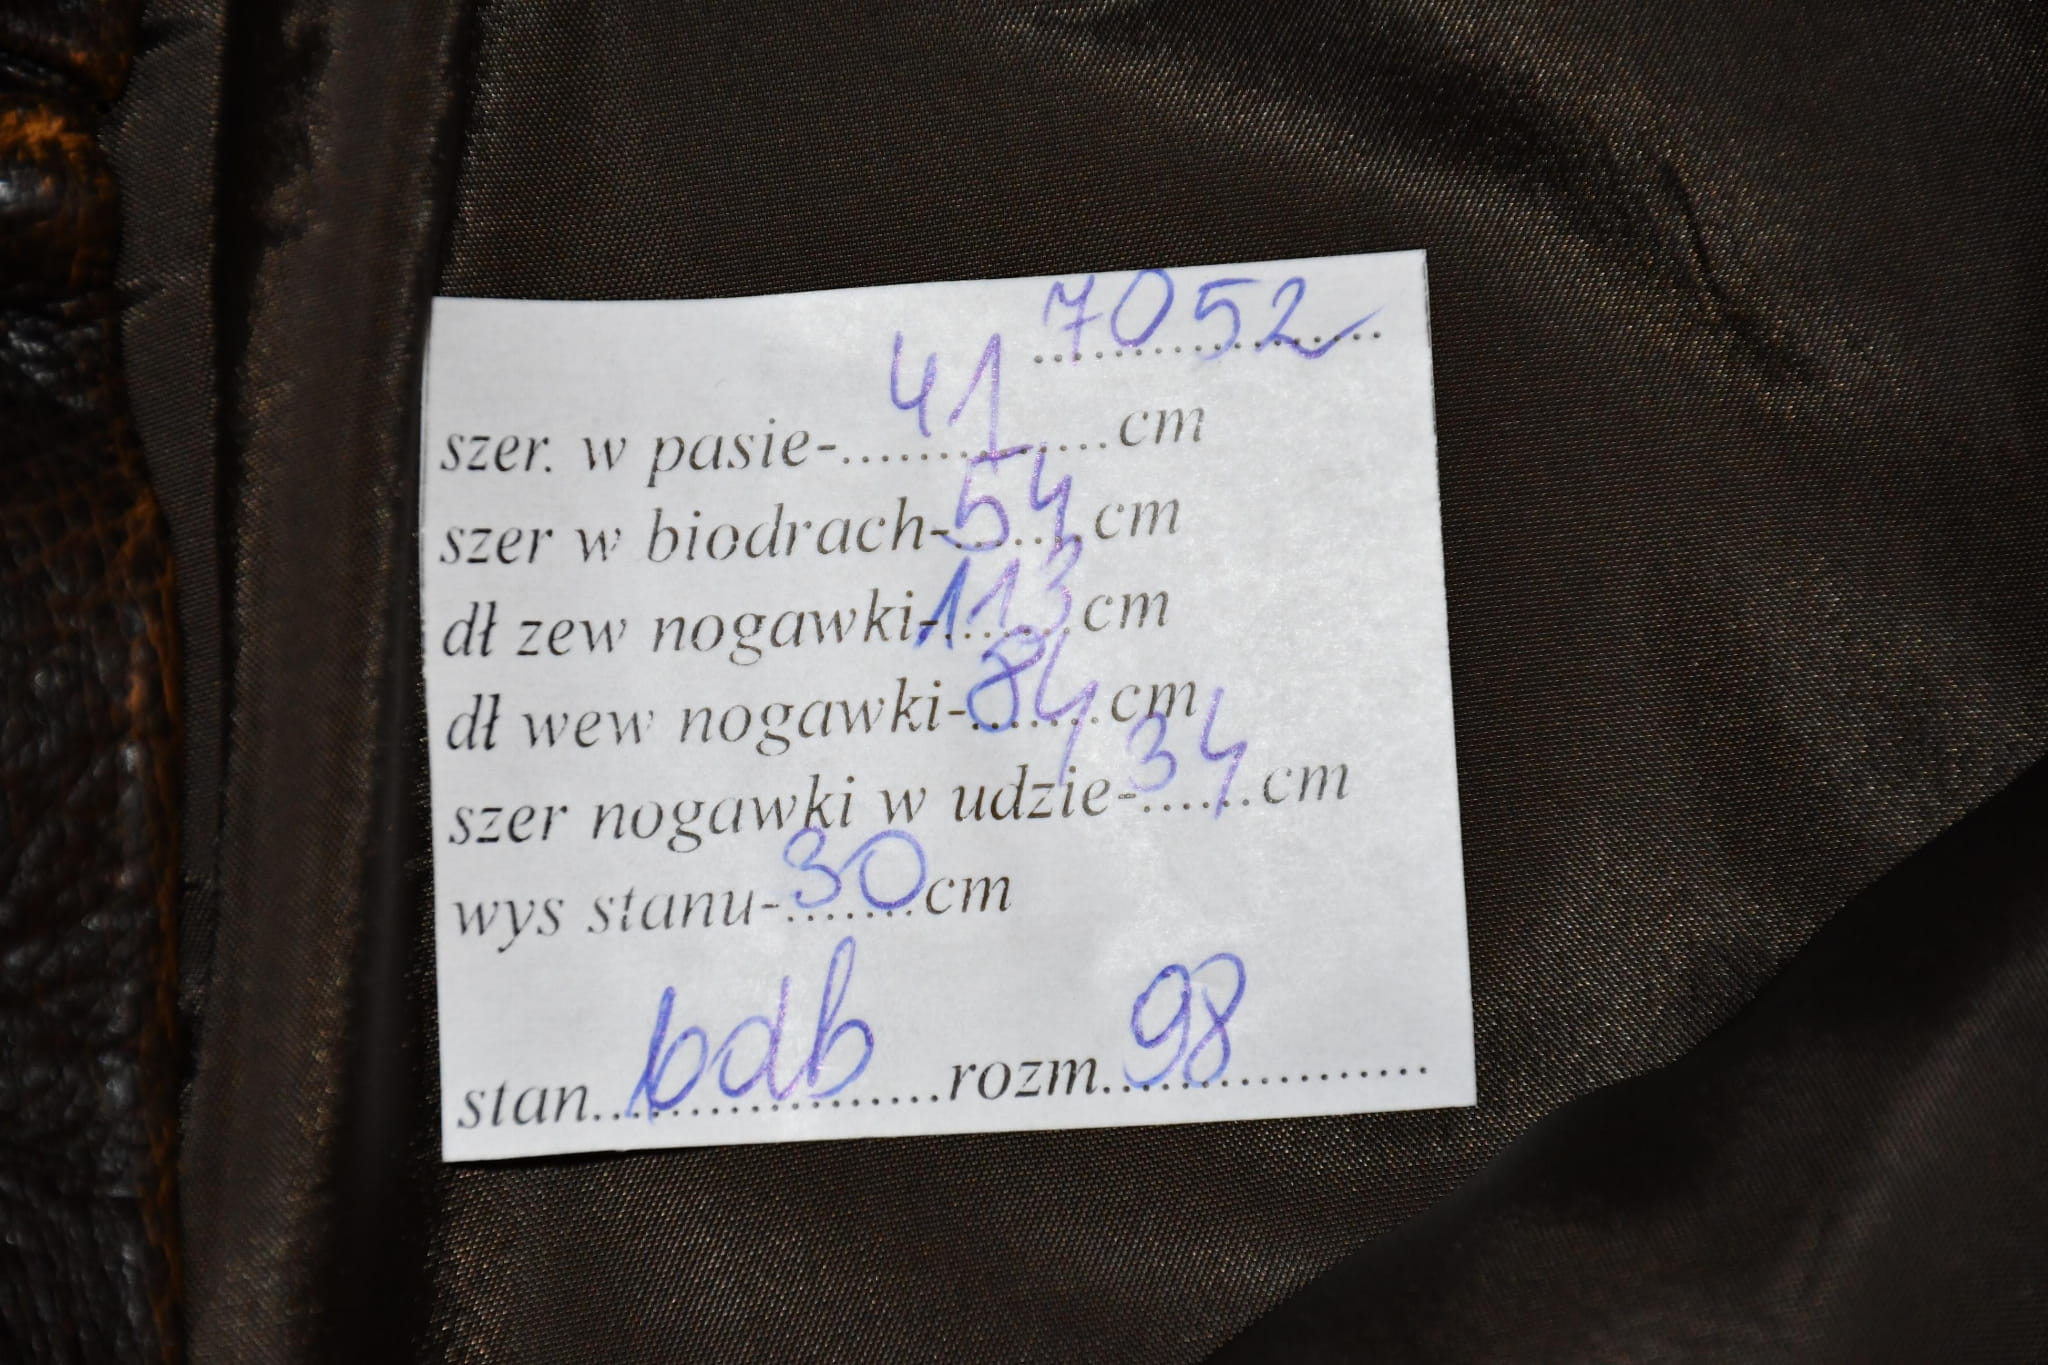 7052
szer. w pasie-.....41.....cm
szer w biodrach-54cm
dł zew nogawki-113cm
dł wew nogawki-84cm
szer nogawki w udzie-34cm
wys stanu-30cm
stan...bdb...rozm...98...